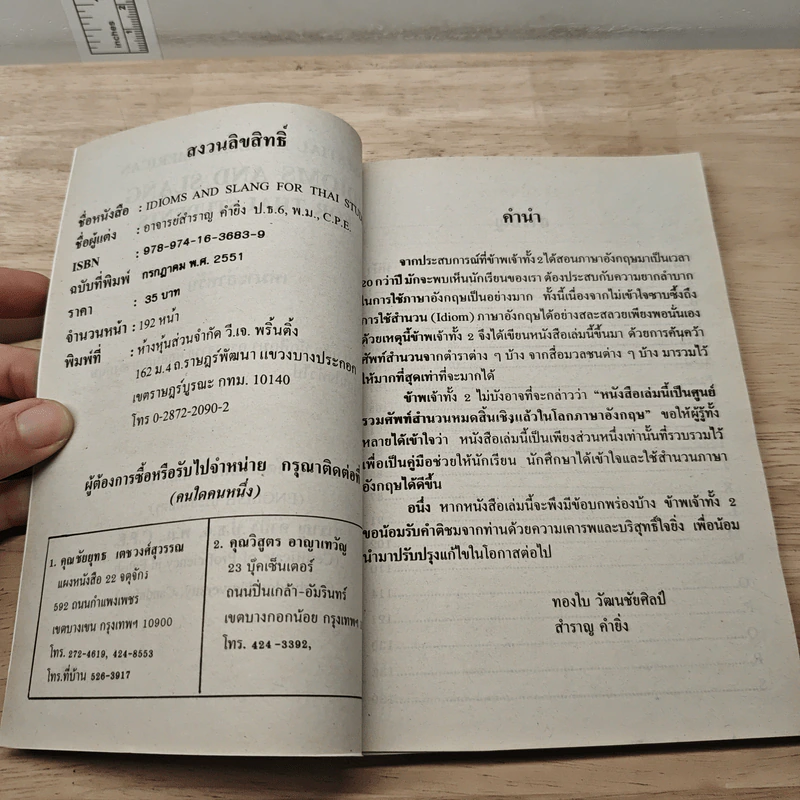 สงวนลิขสิทธิ์
ชื่อหนังสือ : IDIOMS AND SLANG FOR THAI
ชื่อผู้แต่ง : อาจารย์สำราญ คำยิ่ง ป.ธ.6, พ.ม., C.P.E.
ISBN : 978-974-16-3683-9
ฉบับที่พิมพ์ กรกฎาคม พ.ศ. 2551
ราคา : 35 บาท
จำนวนหน้า : 192 หน้า
พิมพ์ที่ : ห้างหุ้นส่วนจำกัด วี.เจ. พริ้นติ้ง
162 ม.4 ถ.ราษฎร์พัฒนา แขวงบางปะกอก
เขตราษฎร์บูรณะ กทม. 10140
โทร 0-2872-2090-2
ผู้ต้องการซื้อหรือรับไปจำหน่าย กรุณาติดต่อที่
(คนใดคนหนึ่ง)
1. คุณชัยยุทธ เตชวงศ์สุวรรณ
แผงหนังสือ 22 จตุจักร
592 ถนนกำแพงเพชร
เขตบางเขน กรุงเทพฯ 10900
โทร. 272-4619, 424-8553
โทร.ที่บ้าน 526-3917
2. คุณวิสูตร อาญาเทวัญ
23 บุ๊คเซ็นเตอร์
ถนนปิ่นเกล้า-อัมรินทร์
เขตบางกอกน้อย กรุงเทพฯ
โทร. 424-3392,
คำนำ
จากประสบการณ์ที่ข้าพเจ้าทั้ง 2 ได้สอนภาษาอังกฤษมาเป็นเวลา
20 กว่าปี มักจะพบเห็นนักเรียนของเรา ต้องประสบกับความยากลำบาก
ในการใช้ภาษาอังกฤษเป็นอย่างมาก ทั้งนี้เนื่องจากไม่เข้าใจซาบซึ้งถึง
การใช้สำนวน (Idiom) ภาษาอังกฤษได้อย่างสละสลวยเพียงพอนั้นเอง
ด้วยเหตุนี้ข้าพเจ้าทั้ง 2 จึงได้เขียนหนังสือเล่มนี้ขึ้นมา ด้วยการค้นคว้า
ศัพท์สำนวนจากตำราต่าง ๆ บ้าง จากสื่อมวลชนต่าง ๆ บ้าง มารวมไว้
ให้มากที่สุดเท่าที่จะมากได้
ข้าพเจ้าทั้ง 2 ไม่บังอาจที่จะกล่าวว่า “หนังสือเล่มนี้เป็นศูนย์
รวมศัพท์สำนวนหมดสิ้นเชิงแล้วในโลกภาษาอังกฤษ” ขอให้ผู้รู้ทั้ง
หลายได้เข้าใจว่า หนังสือเล่มนี้เป็นเพียงส่วนหนึ่งเท่านั้นที่รวบรวมไว้
เพื่อเป็นคู่มือช่วยให้นักเรียน นักศึกษาได้เข้าใจและใช้สำนวนภาษา
อังกฤษได้ดีขึ้น
อนึ่ง หากหนังสือเล่มนี้จะพึงมีข้อบกพร่องบ้าง ข้าพเจ้าทั้ง 2
ขอน้อมรับคำติชมจากท่านด้วยความเคารพและบริสุทธิ์ใจยิ่ง เพื่อน้อม
นำมาปรับปรุงแก้ไขในโอกาสต่อไป
ทองใบ วัฒนชัยศิลป์
สำราญ คำยิ่ง
inches
1
2